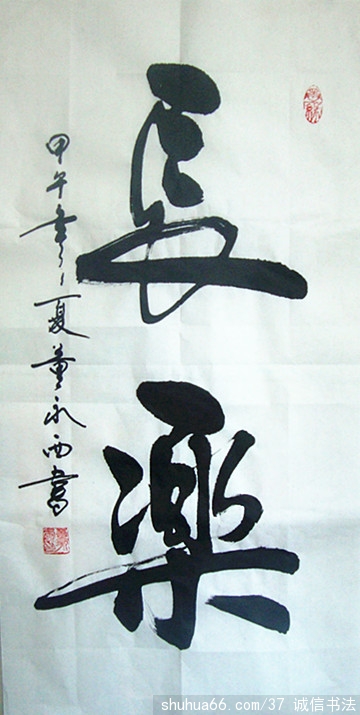 長樂
甲午年夏董永西書
shuhua66.com/37 诚信书法